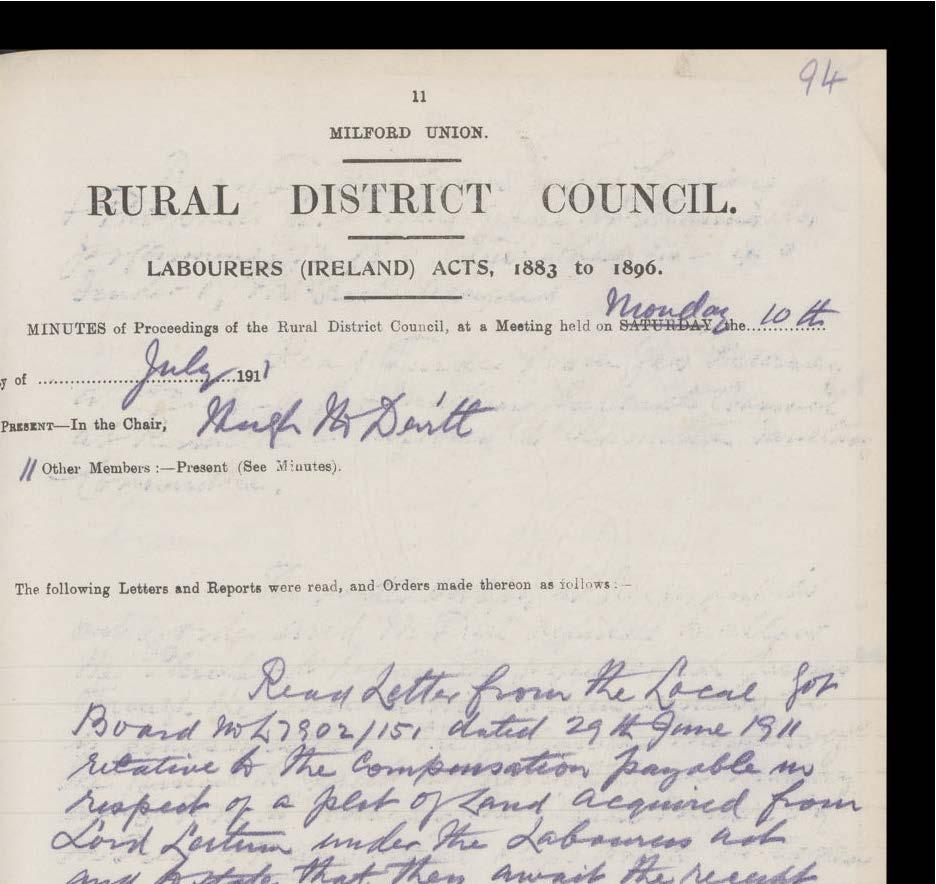 94
11
MILFORD UNION.
RURAL DISTRICT COUNCIL.
LABOURERS (IRELAND) ACTS, 1883 to 1896.
Monday
MINUTES of Proceedings of the Rural District Council, at a Meeting held on SATURDAY, the 10th
y of July 1911
PRESENT—In the Chair, Hugh McDevitt
11 Other Members :—Present (See Minutes).
The following Letters and Reports were read, and Orders made thereon as follows:—
Read Letter from the Local Gov
Board No L7902/151 dated 29th June 1911
relative to the Compensation payable in
respect of a plot of Land acquired from
Lord Leitrim under the Labourers act
and to state that they await the receipt